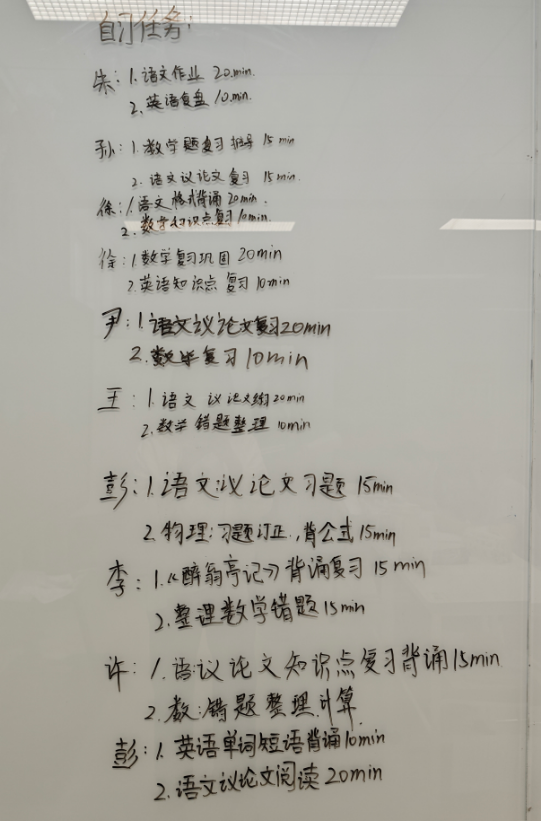 自习任务:
朱: 1. 语文作业 20min.
2. 英语复盘 10min.
孙: 1. 数学题复习 15 min
2. 语文议论文复习 15min.
徐: 1. 语文 背诵 20min.
2. 数学知识点复习 10min.
徐: 1 数学复习巩固 20min
2. 英语知识点 复习 10min
尹: 1. 语文议论文复习20min
2. 数学复习10min
王: 1. 语文 议论文 20min
2. 数学 错题整理 10min
彭: 1. 语文议论文习题 15min
2. 物理: 习题订正, 背公式 15min
李: 1.《醉翁亭记》背诵复习 15 min
2. 整理数学错题15min
许: 1. 语:议论文知识点复习背诵15min
2. 数: 错题整理.计算.
彭: 1. 英语单词短语背诵10min
2. 语文议论文阅读 20min